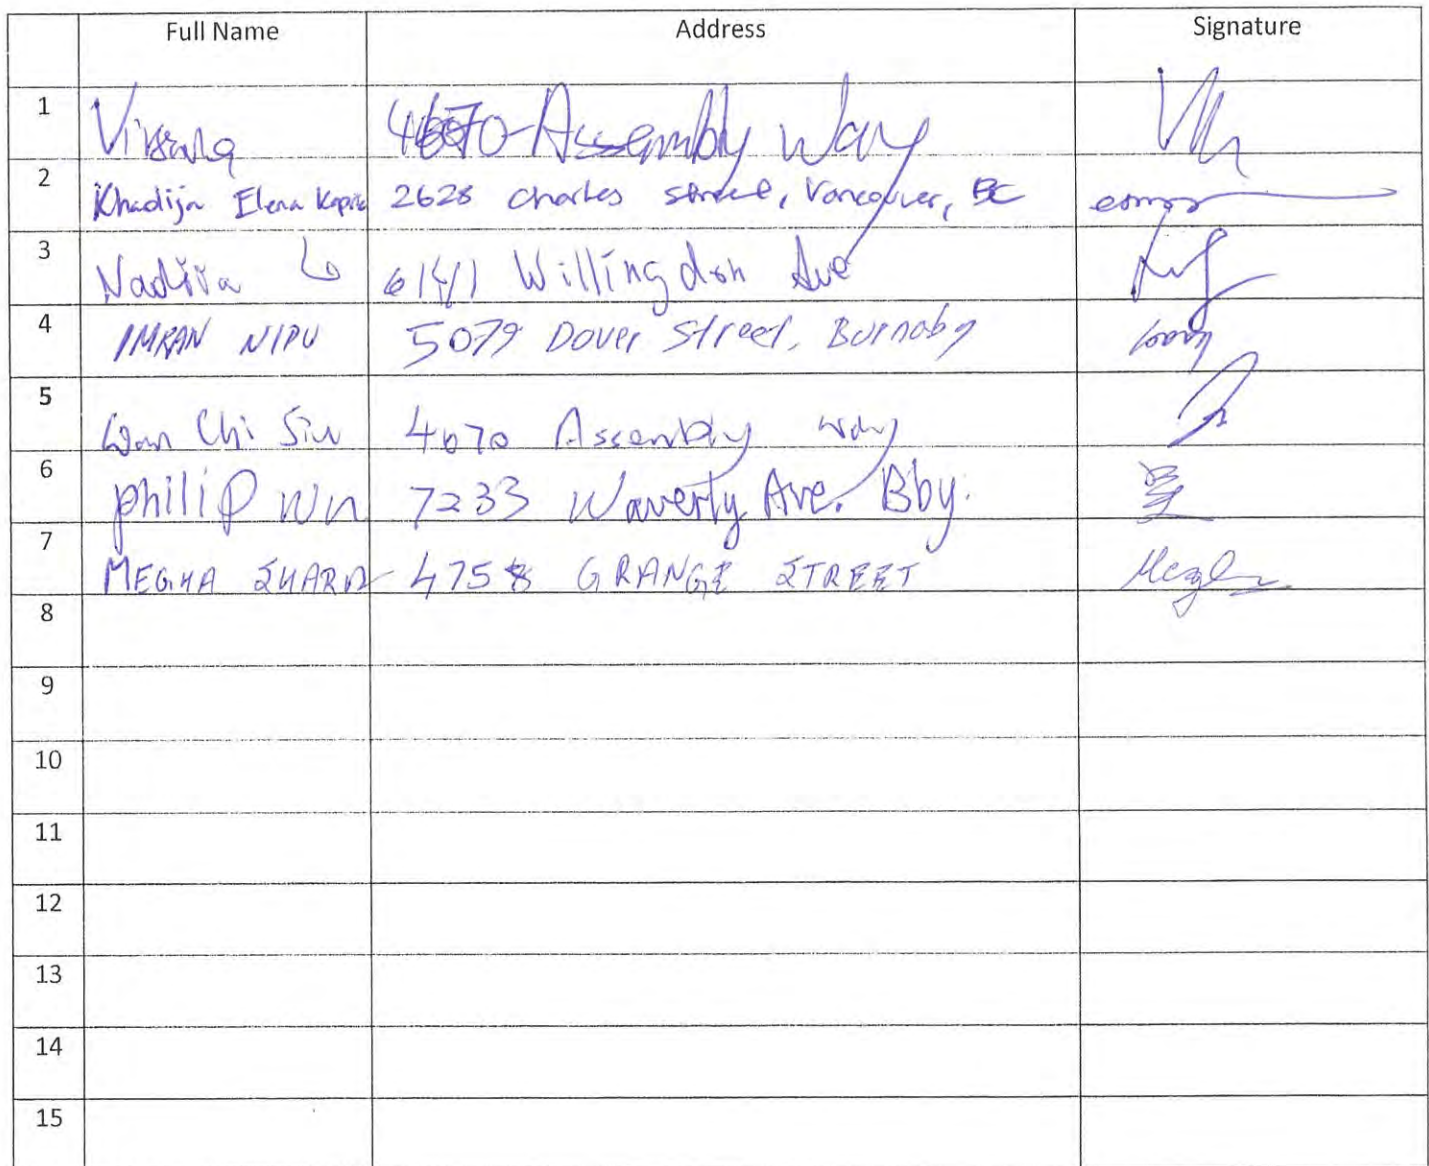 Full Name Address Signature
1 4670 Assembly Way
2 Khadija Elena 2628 Charles Street, Vancouver, BC
3 6141 Willingdon Ave
4 IMRAN NIPU 5079 Dover Street, Burnaby
5 Wan Chi Siu 4670 Assembly Way
6 Philip Wu 7233 Waverly Ave. Bby. 吴
7 MEGHA 4758 GRANGE STREET
8
9
10
11
12
13
14
15